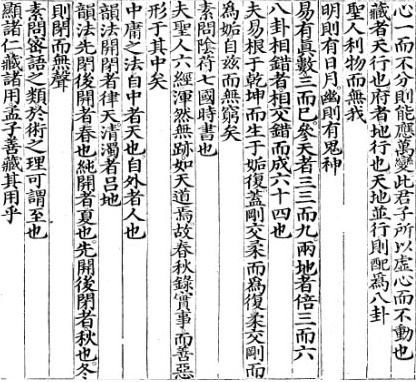 心一而不分則能應萬變此君子所以虛心而不動也
藏者天行也府者地行也天地並行則配為八卦
聖人利物而無我
明則有日月幽則有鬼神
易有真數三而已參天者三三而九兩地者倍三而六
八卦相錯者相交錯而成六十四也
夫易根于乾坤而生于姤復蓋剛交柔而為復柔交剛而
為姤自茲而無窮矣
素問陰符七國時書也
夫聖人六經渾然無跡如天道焉故春秋錄實事而善惡
形于其中矣
中庸之法自中者天也自外者人也
韻法開閉者律天清濁者呂地
韻法先閉後開者春也純開者夏也先開後閉者秋也冬
則閉而無聲
素問密語之類於術之理可謂至也
顯諸仁藏諸用孟子善藏其用乎